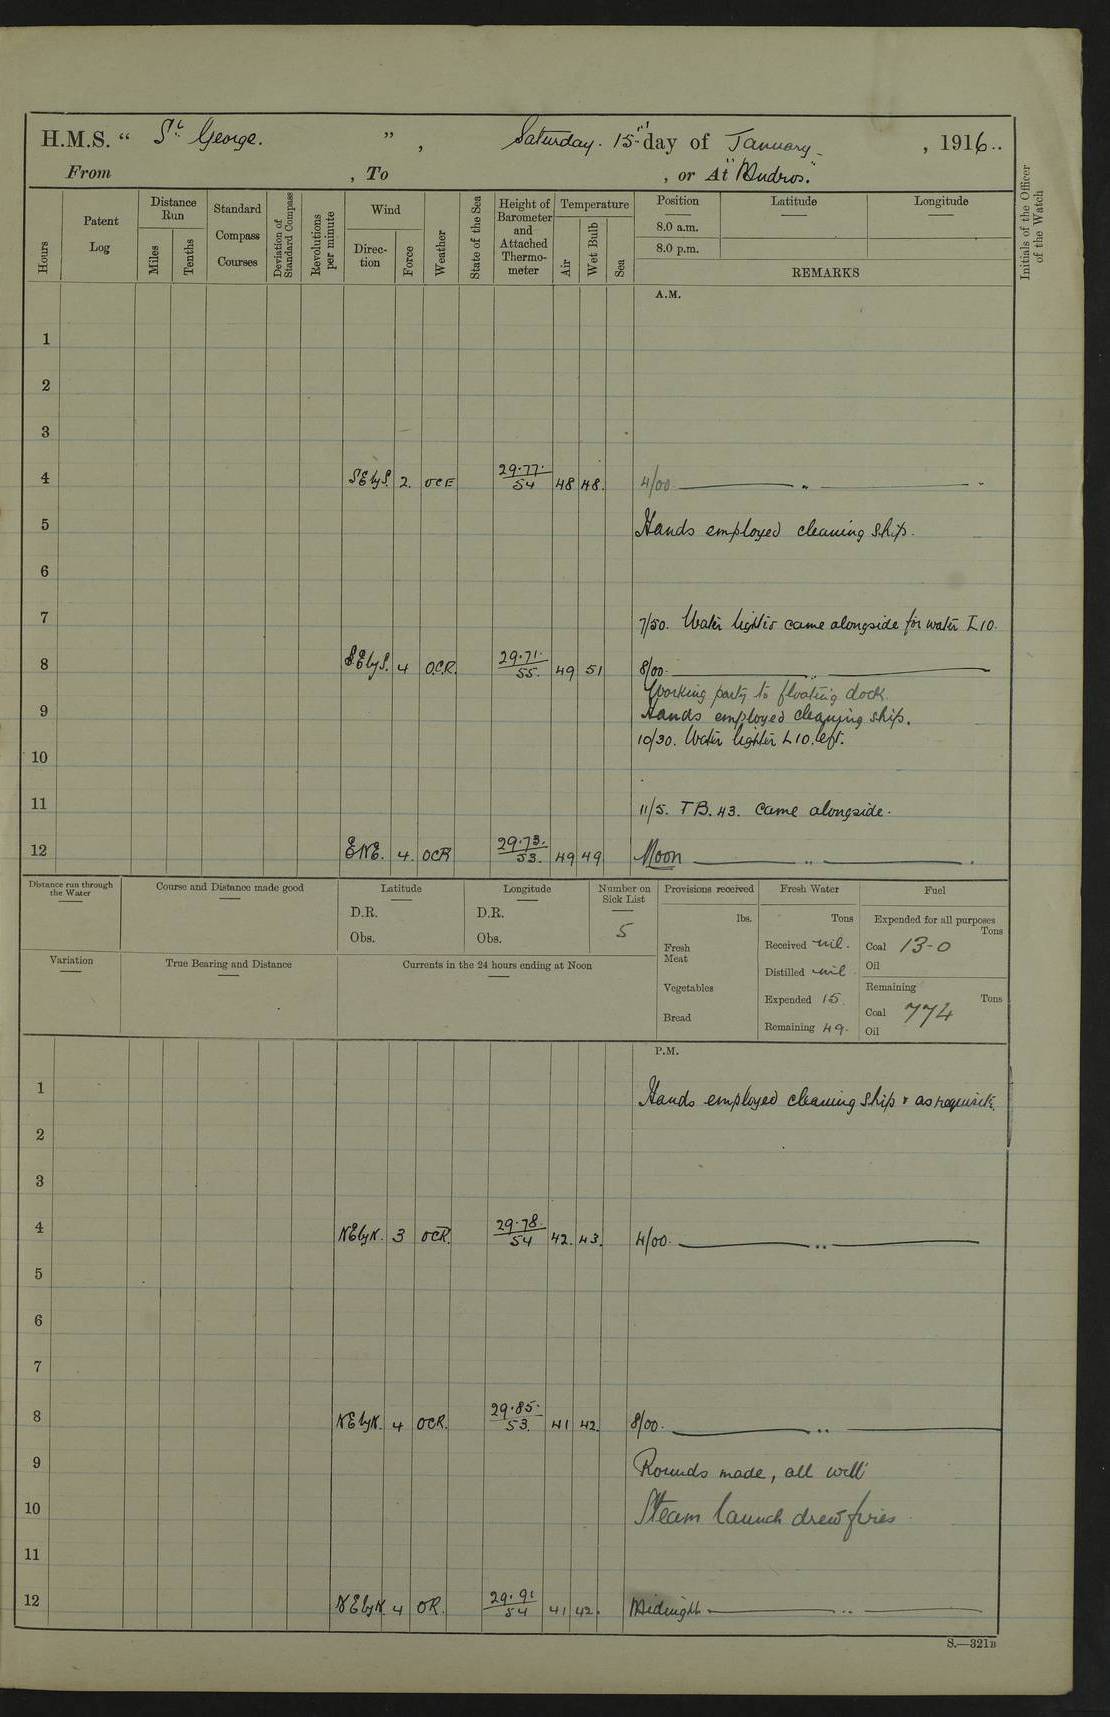 H.M.S. “ St George. ” , Saturday. 15th day of January , 1916..
From , To , or At "Mudros."
Hours
Patent Log
Distance Run
Miles
Tenths
Standard Compass Courses
Deviation of Standard Compass
Revolutions per minute
Wind
Direc-tion
Force
Weather
State of the Sea
Height of Barometer and Attached Thermo-meter
Temperature
Air
Wet Bulb
Sea
Position Latitude Longitude
8.0 a.m.
8.0 p.m.
REMARKS
Initials of the Officer of the Watch
A.M.
1
2
3
4 SE by S. 2. OCF 29.77. 54 48 48. 4/00 ———— „ ————
5 Hands employed cleaning ship.
6
7 7/50. Water lighter came alongside for water L10.
8 SE by S. 4 O.C.R. 29.71. 55. 49 51 8/00. ———— „ ————
Working party to floating dock.
9 Hands employed cleaning ship.
10/30. Water lighter L10. left.
10
11 11/5. T.B. 43. came alongside.
12 ENE. 4. OCR 29.73. 53. 49 49 Noon ———— „ ————
Distance run through the Water
Course and Distance made good
Latitude
D.R.
Obs.
Longitude
D.R.
Obs.
Number on Sick List
5
Provisions received
lbs.
Fresh Meat
Vegetables
Bread
Fresh Water
Tons
Received nil.
Distilled nil
Expended 15.
Remaining 49.
Fuel
Expended for all purposes
Tons
Coal 13-0
Oil
Remaining
Tons
Coal 774
Oil
Variation
True Bearing and Distance
Currents in the 24 hours ending at Noon
P.M.
1 Hands employed cleaning ship & as requisite.
2
3
4 NE by N. 3 OCR. 29.78. 54 42. 43. 4/00. ———— „ ————
5
6
7
8 NE by N. 4 OCR. 29.85. 53. 41 42. 8/00. ———— „ ————
9 Rounds made, all well
10 Steam launch drew fires
11
12 NE by N 4 OR. 29.91 54 41 42. Midnight ———— „ ————
S.—321B